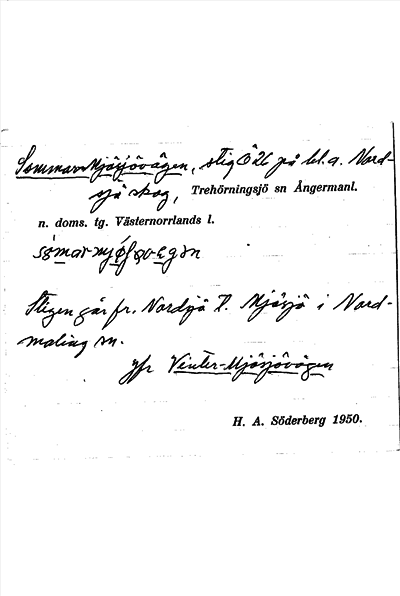 Sommar-Mjösjövägen, stig Ö 26 på bl. a. Nord-
sjö skog, Trehörningsjö sn Ångermanl.
n. doms. tg. Västernorrlands l.
Stigen går fr. Nordsjö t. Mjösjö i Nord-
maling sn.
Jfr Vinter-Mjösjövägen
H. A. Söderberg 1950.